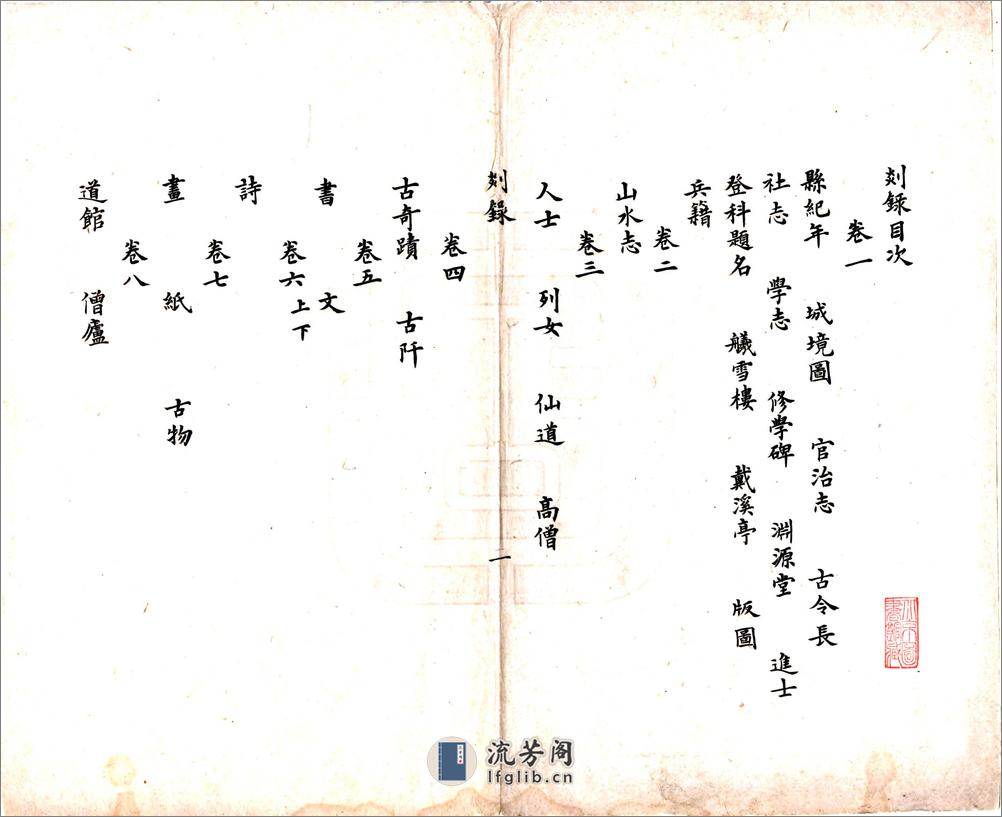 剡錄目次
卷一
縣紀年 城境圖 官治志 古令長
社志 學志 修學碑 淵源堂 進士
登科題名 艤雪樓 戴溪亭 版圖
兵籍
卷二
山水志
卷三
人士 列女 仙道 高僧
剡錄 一
卷四
古奇蹟 古阡
卷五
書 文
卷六上下
詩
卷七
畫 紙 古物
卷八
道館 僧廬
流芳阁
lfglib.cn